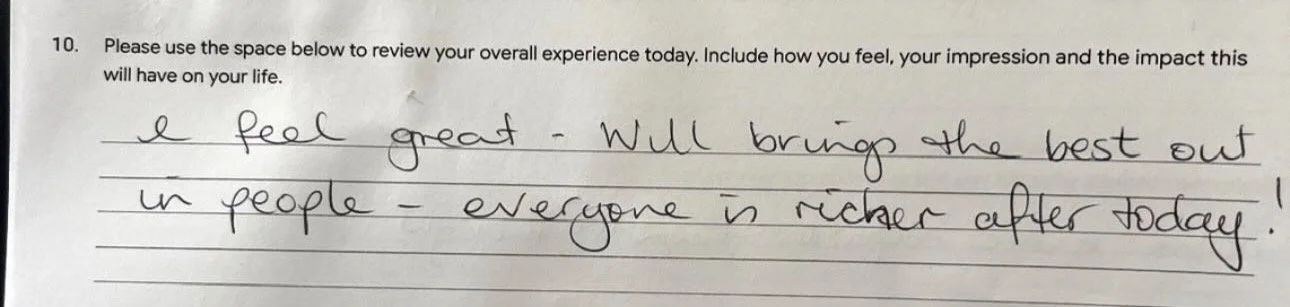 10. Please use the space below to review your overall experience today. Include how you feel, your impression and the impact this
will have on your life.
I feel great - Will brings the best out
in people - everyone is richer after today!